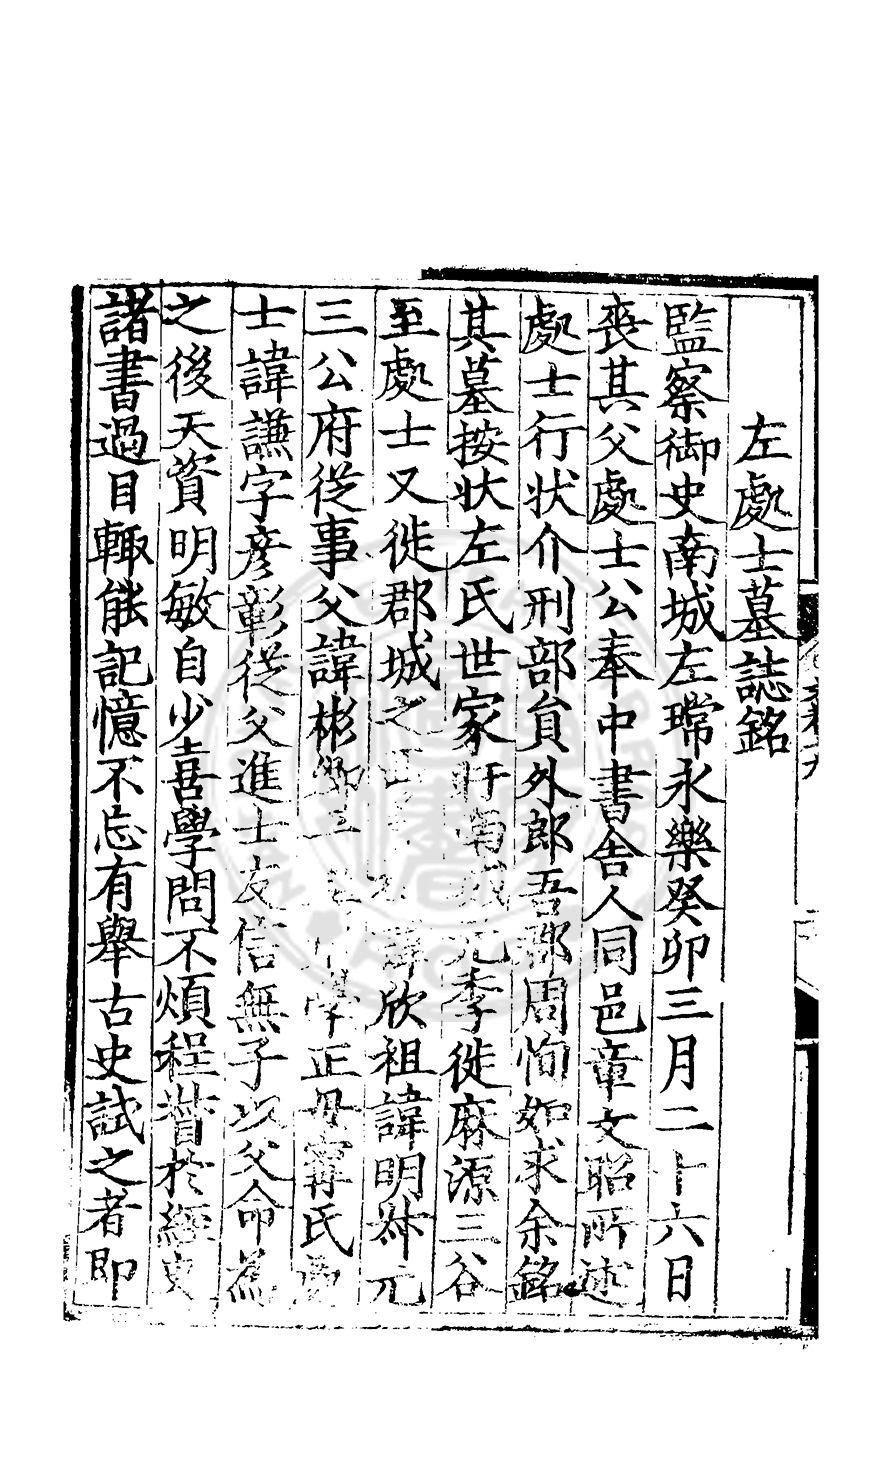 左處士墓誌銘
監察御史南城左瑺永樂癸卯三月二十六日
喪其父處士公奉中書舍人同邑章文昭所述
處士行狀介刑部員外郎吾郡周恂如求余銘
其墓按狀左氏世家旴南城元季徙麻源三谷
至處士又徙郡城之諱欣祖諱明元
三公府從事父諱彬學正母甯氏
士諱謙字彥彰從父進士友信無子以父命為
之後天資明敏自少喜學問不煩程督於經史
諸書過目輙能記憶不忘有舉古史試之者即